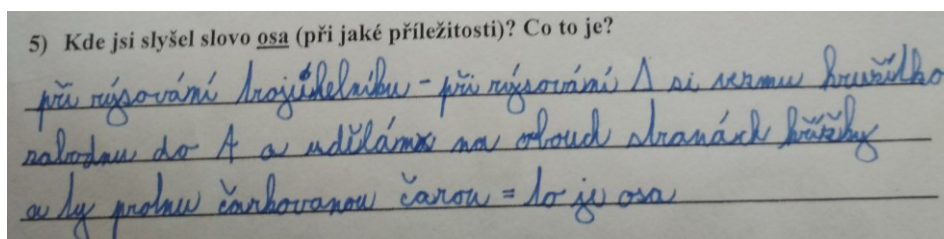 5) Kde jsi slyšel slovo osa (při jaké příležitosti)? Co to je?
při rýsování trojúhelníku - při rýsování Δ si vezmu kružítko
zabodnu do A a udělám na obouch stranách křížky
a ty protnu čárkovanou čarou = to je osa